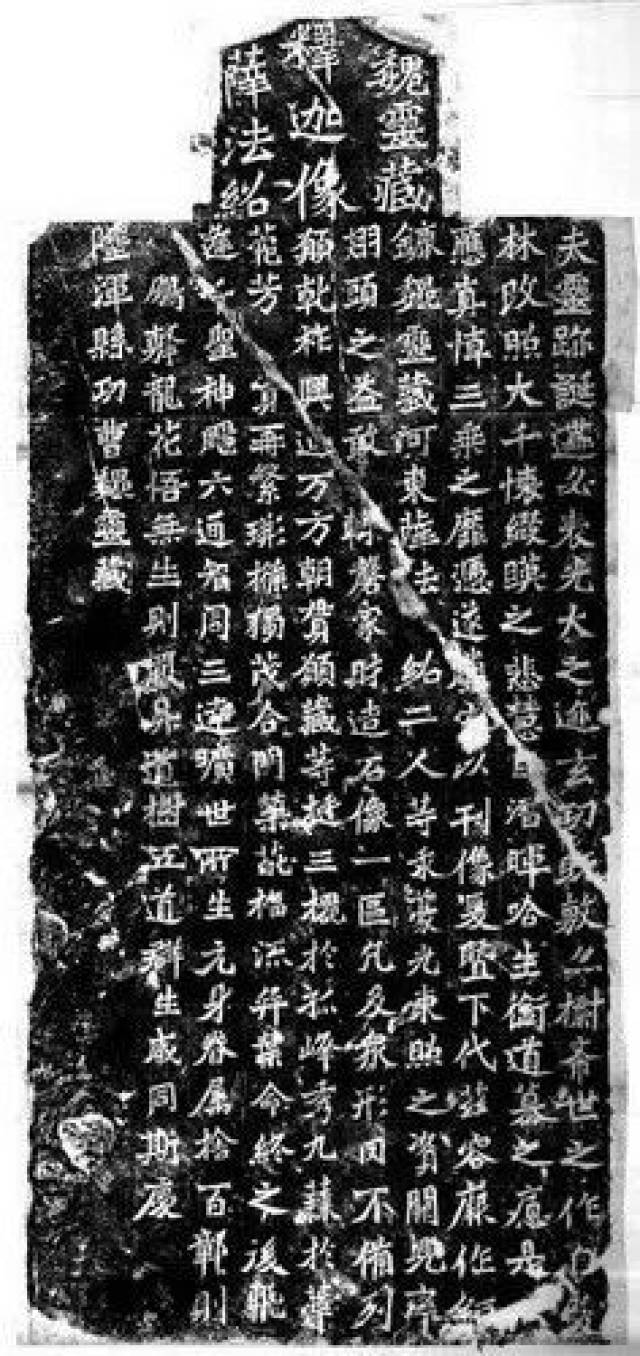 魏靈藏
釋迦像
薛法紹
夫靈跡誕遘必表光大之迹玄功既敷亦樹希世之作
林改照大千懷綴暎之悲慧日潛暉哈生銜道慕之痯是
應真悼三乘之靡憑遂騰空以刊像爰暨下代茲容厥作
鉅鹿魏靈藏河東薛法紹二人等求豪光東照之資闕兜率
翅頭之益敢輒磬家財造石像一區凡及眾形罔不備列
願乾祚興延万方朝貫願藏等挺三槐於孤峰秀九蕀於華
菀芳實再繁荊條獨茂合門榮葩福流弈葉命終之後飛
逢千聖神颺六通智周三達曠世所生元身眷屬捨百鄣則
鵬擊龍花悟無生則鳳昇道樹五道群生咸同斯慶
陸渾縣功曹魏靈藏